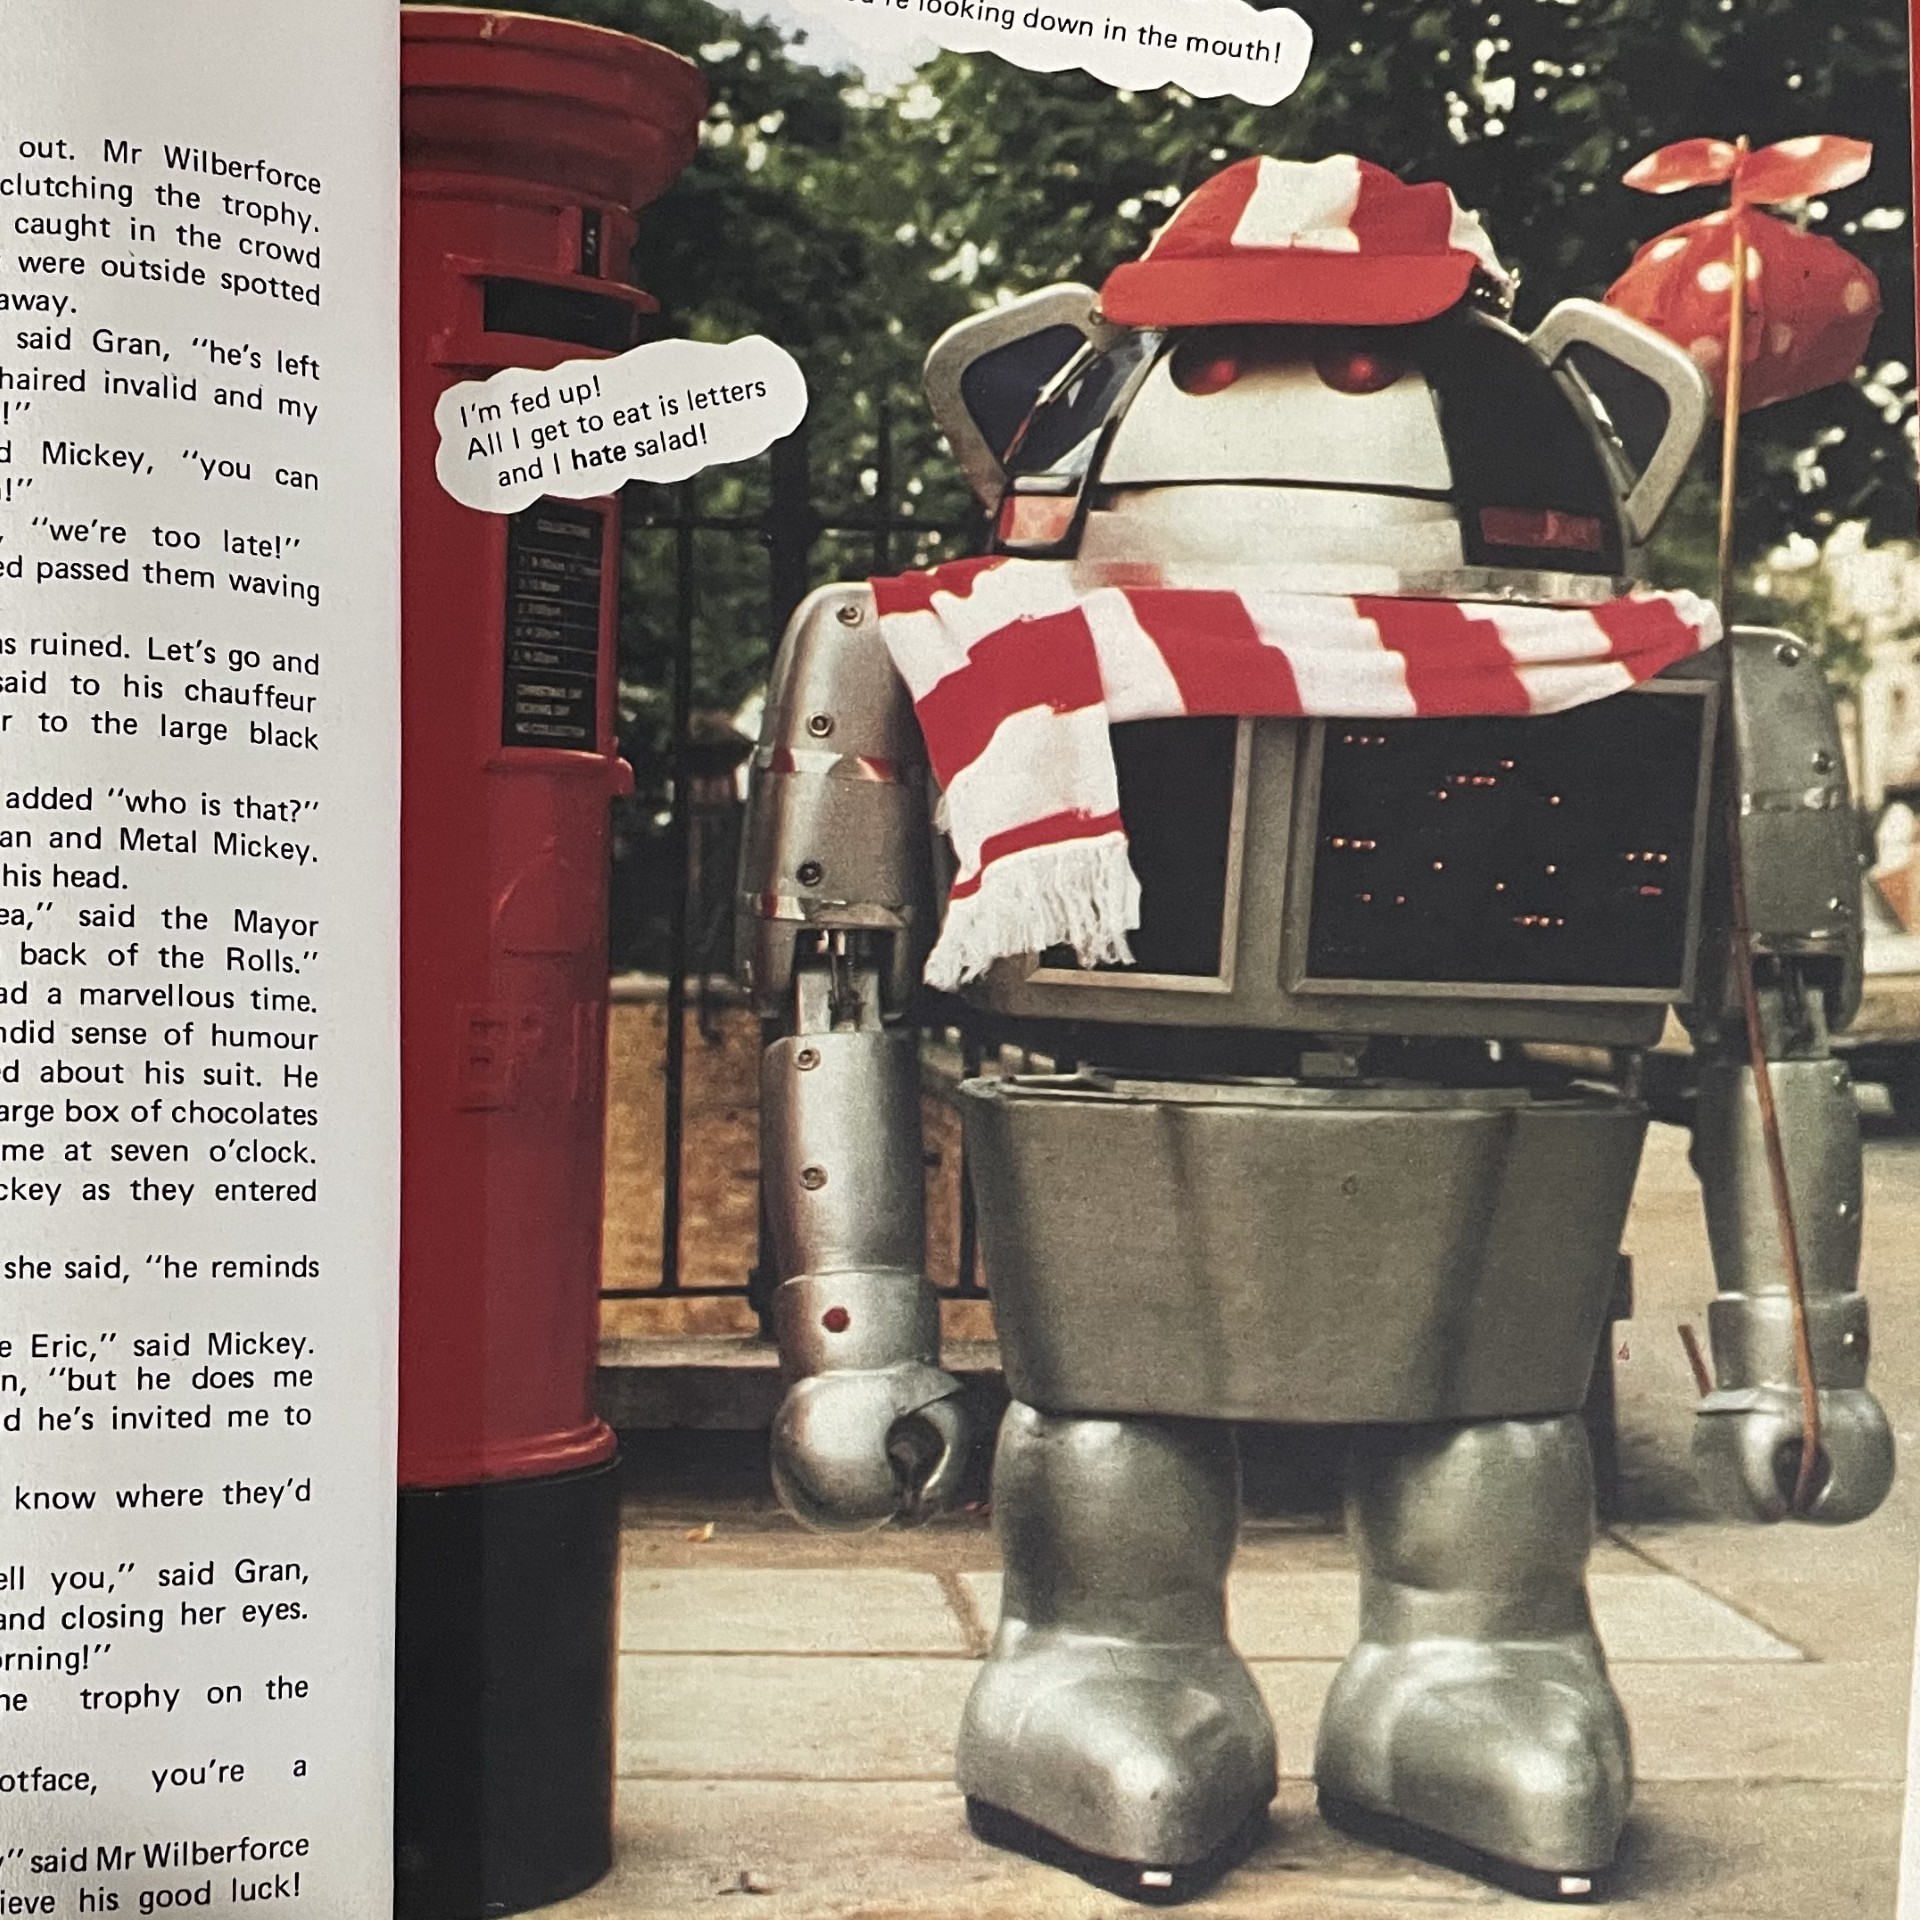 out. Mr Wilberforce
clutching the trophy.
caught in the crowd
were outside spotted
away.
said Gran, "he's left
haired invalid and my
!"
d Mickey, "you can
!"
"we're too late!"
ed passed them waving
s ruined. Let's go and
said to his chauffeur
r to the large black
added "who is that?"
an and Metal Mickey.
his head.
ea," said the Mayor
back of the Rolls."
ad a marvellous time.
ndid sense of humour
d about his suit. He
arge box of chocolates
me at seven o'clock.
ckey as they entered
she said, "he reminds
e Eric," said Mickey.
n, "but he does me
d he's invited me to
know where they'd
ell you," said Gran,
and closing her eyes.
orning!"
he trophy on the
otface, you're a
y" said Mr Wilberforce
ieve his good luck!
looking down in the mouth!
I'm fed up!
All I get to eat is letters
and I hate salad!
5
COLLECTIONS
CHRISTMAS DAY
BOXING DAY
NO COLLECTION